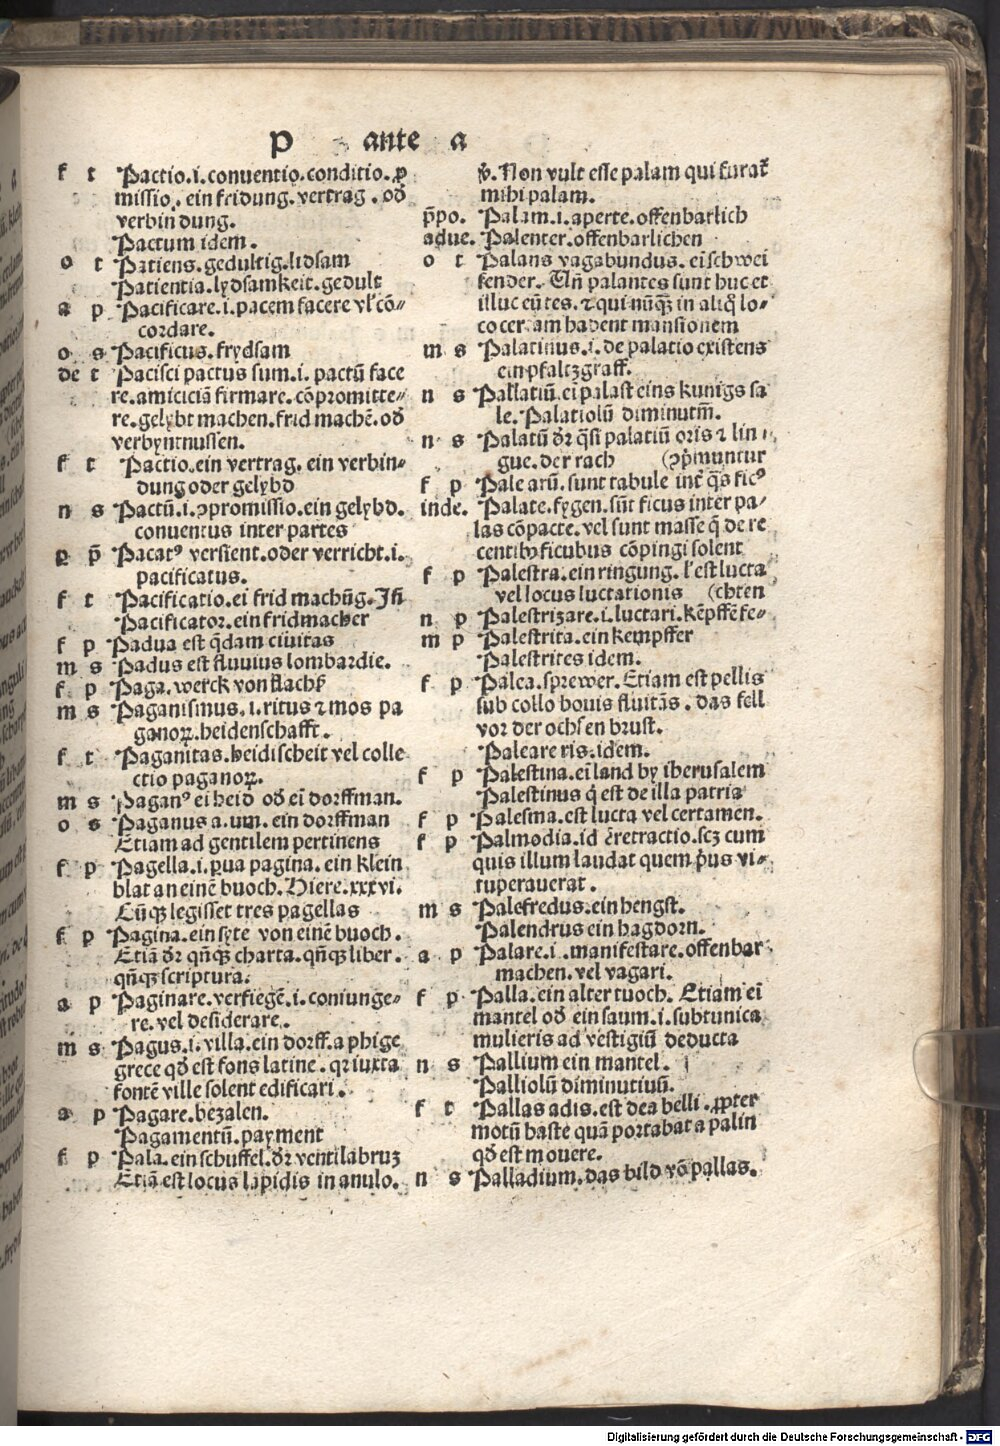 P ante a
f t Pactio.i.conuentio.conditio.ꝓ
missio. ein fridung. vertrag. od̄
verbindung.
Pactum idem.
o t Patiens.gedultig.lidsam
Patientia.lydsamkeit.gedult
a p Pacificare.i.pacem facere vl' cō-
cordare.
o s Pacificus.frydsam
de t Pacisci pactus sum.i. pactū face
re.amiciciā firmare. cōpromitte-
re.gelybt machen.frid machē.od̄
verbyntnussen.
f t Pactio.ein vertrag. ein verbin-
dung oder gelybd
n s Pactū.i.ꝯpromissio.ein gelybd.
conuentus inter partes
p p̄ Pacatꝰ versient.oder verricht.i.
pacificatus.
f t Pacificatio.ei frid machūg. Jtē
Pacificator.ein fridmacher
f p Padua est q̄dam ciuitas
m s Padus est fluuius lombardie.
f p Paga.werck von flachß
m s Paganismus.i.ritus ⁊ mos pa
ganoꝝ.heidenschafft.
f t Paganitas.heidischeit vel colle
ctio paganoꝝ.
m s Paganꝰ ei heid od̄ eī dorffman.
o s Paganus a.um. ein dorffman
Etiam ad gentilem pertinens
f p Pagella.i.ꝑua pagina. ein klein
blat an einē buoch. Hiere.xxxvi.
Cūqꝫ legisset tres pagellas
f p Pagina.ein syte von einē buoch.
Etiā dr̄ qn̄qꝫ charta.qn̄qꝫ liber.
qn̄qꝫ scriptura.
a p Paginare.verfiegē.i.coniunge-
re.vel desiderare.
m s Pagus.i.villa.ein dorff.a phige
grece qd̄ est fons latine.qꝛ iuxta
fontē ville solent edificari.
a p Pagare.bezalen.
Pagamentū.payment
f p Pala.ein schuffel.dr̄ ventilabruꝫ
Etiā est locus lapidis in anulo.
v̄.Non vult esse palam qui furat᷑
mihi palam.
p̄po. Palam.i.aperte.offenbarlich
adue. Palenter.offenbarlichen
o t Palans vagabundus. ei schwei
fender. Vn̄ palantes sunt huc et
illuc eūtes.⁊ qui nūqꝫ in aliq̊ lo-
co certam habent mansionem
m s Palatinus.i.de palatio existens
ein pfaltzgraff.
n s Pallatiū.ei palast eins kunigs sa
le. Palatiolū diminutiū.
n s Palatū dr̄ q̄si palatiū oris ⁊ lin
gue.der rach (ꝯp̄muntur
f p Pale arū.sunt tabule int̄ q̄s ficꝰ
inde. Palate.fygen.sūt ficus inter pa-
las cōpacte.vel sunt masse q̄ de re
centibꝰ ficubus cōpingi solent
f p Palestra.ein ringung. l' est lucta
vel locus luctationis (chten
n p Palestrizare.i.luctari.kēpffē fe-
m p Palestrita.ein kempffer
Palestrites idem.
f p Palea.sprewer.Etiam est pellis
sub collo bouis fluitās. das fell
vor der ochsen brust.
Paleare ris.idem.
f p Palestina.eī land by iherusalem
Palestinus q̇ est de illa patria
f p Palesma.est lucta vel certamen.
f p Palmodia.id ē retractio.scꝫ cum
quis illum laudat quem p̄us vi-
tuperauerat.
m s Palefredus.ein hengst.
Palendrus ein hagdorn.
a p Palare.i.manifestare.offenbar
machen.vel vagari.
f p Palla.ein alter tuoch. Etiam eī
mantel od̄ ein saum.i.subtunica
mulieris ad vestigiū deducta
n s Pallium ein mantel.
Palliolū diminutiuū.
f t Pallas adis.est dea belli.ꝓpter
motū haste quā portabat a palin
qd̄ est mouere.
n s Palladium.das bild vō pallas.
Digitalisierung gefördert durch die Deutsche Forschungsgemeinschaft - DFG